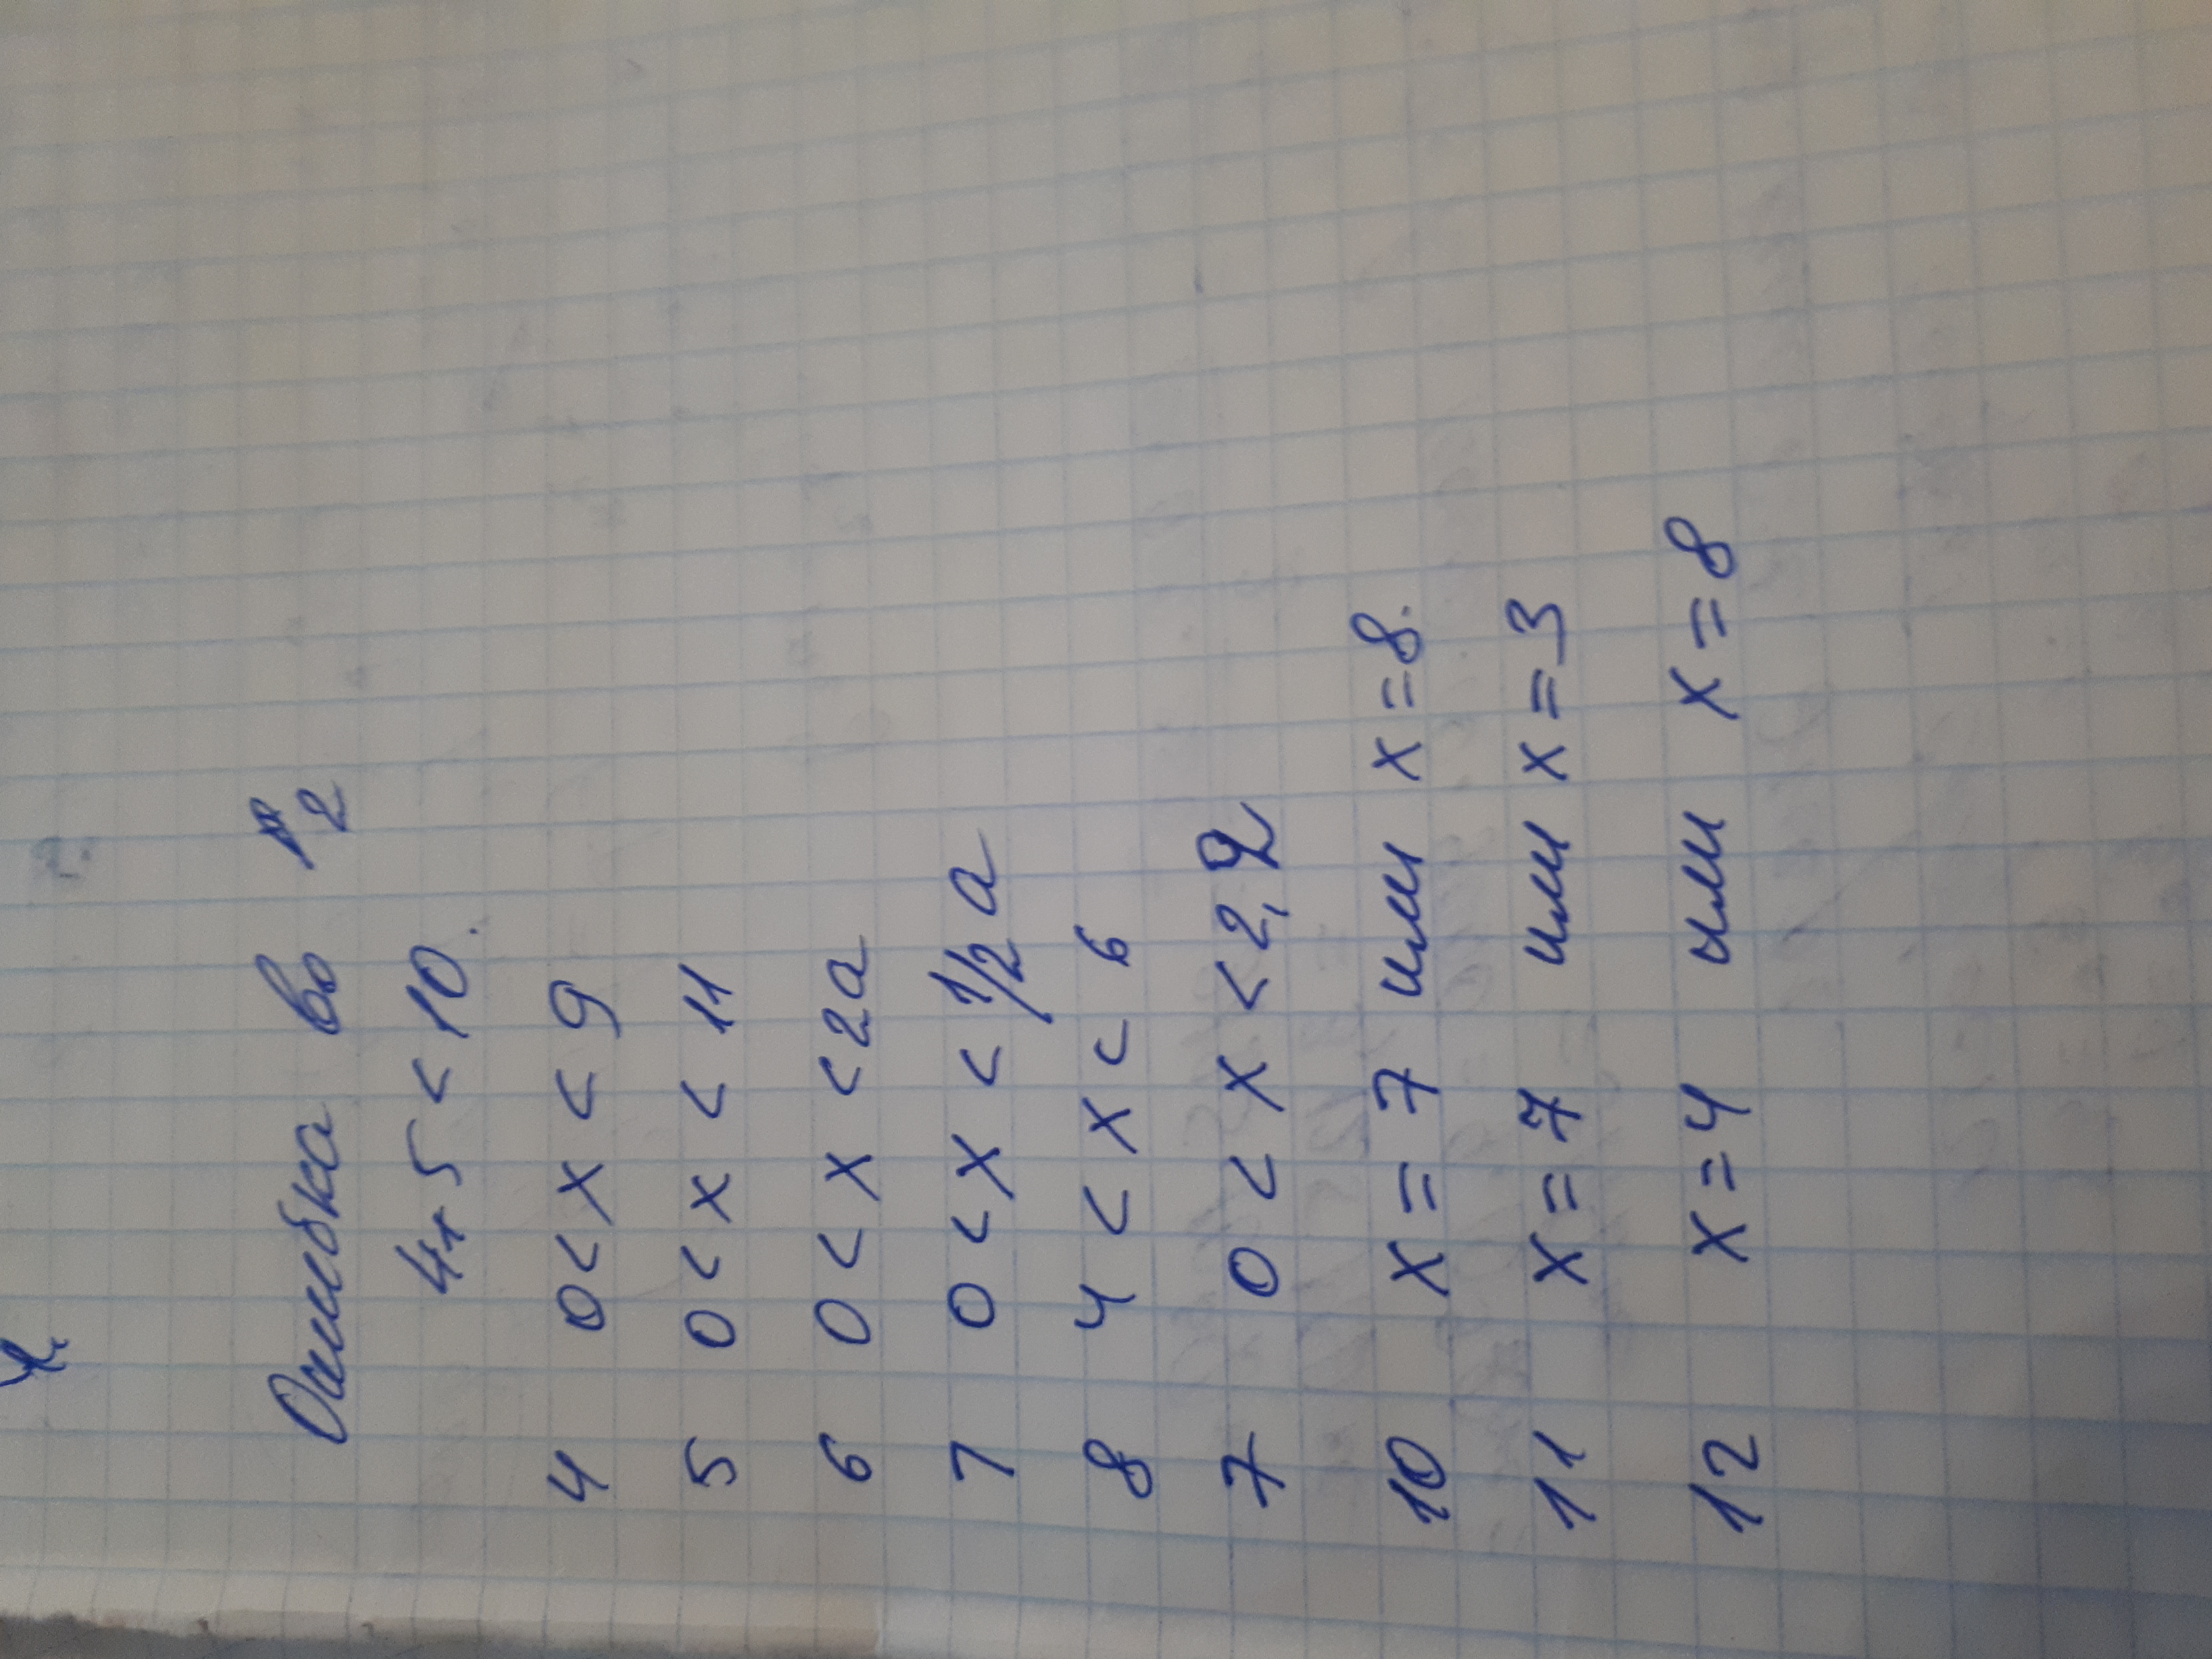 Ошибка во 2
4+5 < 10.
4 0 < x < 9
5 0 < x < 11
6 0 < x < 2a
7 0 < x < 1/2 a
8 4 < x < 6
7 0 < x < 2,2
10 x = 7 или x = 8.
11 x = 7 или x = 3
12 x = 4 или x = 8